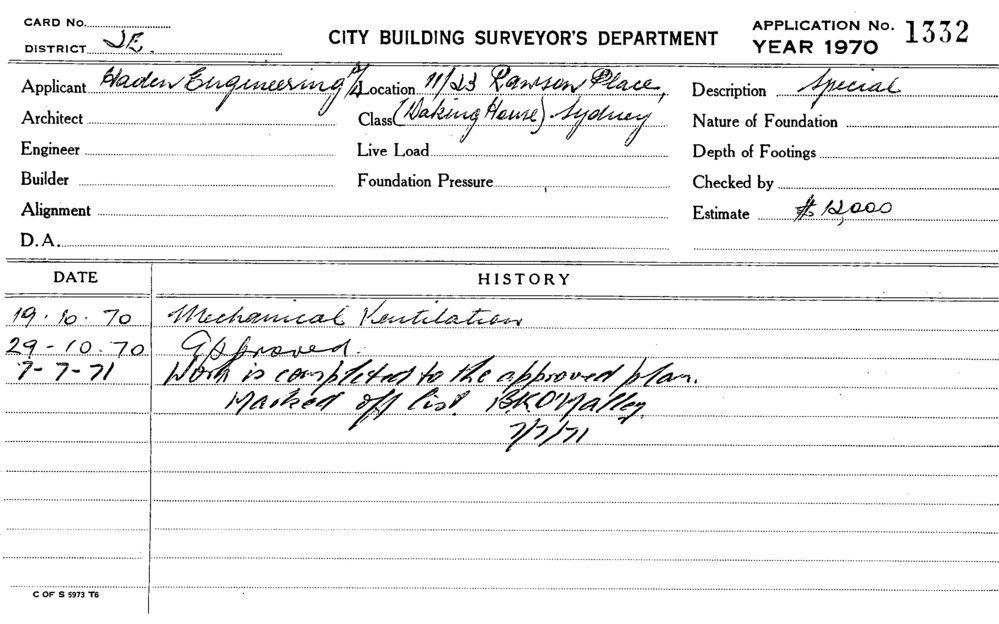 CARD No.
DISTRICT JE.
CITY BUILDING SURVEYOR'S DEPARTMENT
APPLICATION No. 1332
YEAR 1970
Applicant Haden Engineering P/L
Location 11/23 Rawson Place,
Description Special
Architect
Class (Daking House) Sydney
Nature of Foundation
Engineer
Live Load
Depth of Footings
Builder
Foundation Pressure
Checked by
Alignment
Estimate $12,000
D.A.
DATE HISTORY
19.10.70 Mechanical Ventilation
29-10.70 Approved.
7-7-71 Work is completed to the approved plan.
Marked off list. B.K.O'Malley
7/7/71
C OF S 5973 T6